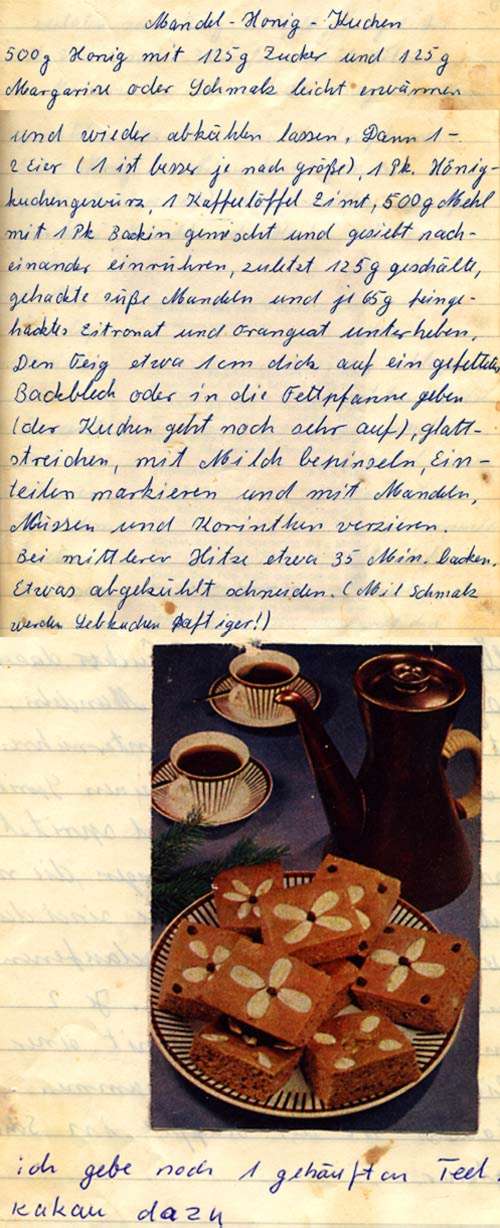 Mandel-Honig-Kuchen
500g Honig mit 125g Zucker und 125g
Margarine oder Schmalz leicht erwärmen
und wieder abkühlen lassen. Dann 1-
2 Eier (1 ist besser je nach größe), 1 Pk. Hönig-
kuchengewürz, 1 Kaffeelöffel Zimt, 500g Mehl
mit 1 Pk Backin gemischt und gesiebt nach-
einander einrühren, zuletzt 125g geschälte,
gehackte süße Mandeln und je 65g feinge-
hacktes Zitronat und Orangeat unterheben.
Den Teig etwa 1cm dick auf ein gefettetes
Backblech oder in die Fettpfanne geben
(der Kuchen geht noch sehr auf), glatt-
streichen, mit Milch bepinseln, Ein-
teilen markieren und mit Mandeln,
Nüssen und Korinthen verzieren.
Bei mittlerer Hitze etwa 35 Min. backen.
Etwas abgekühlt schneiden. (Mit Schmalz
werden Lebkuchen saftiger!)
ich gebe noch 1 gehäuften Teel.
kakau dazu